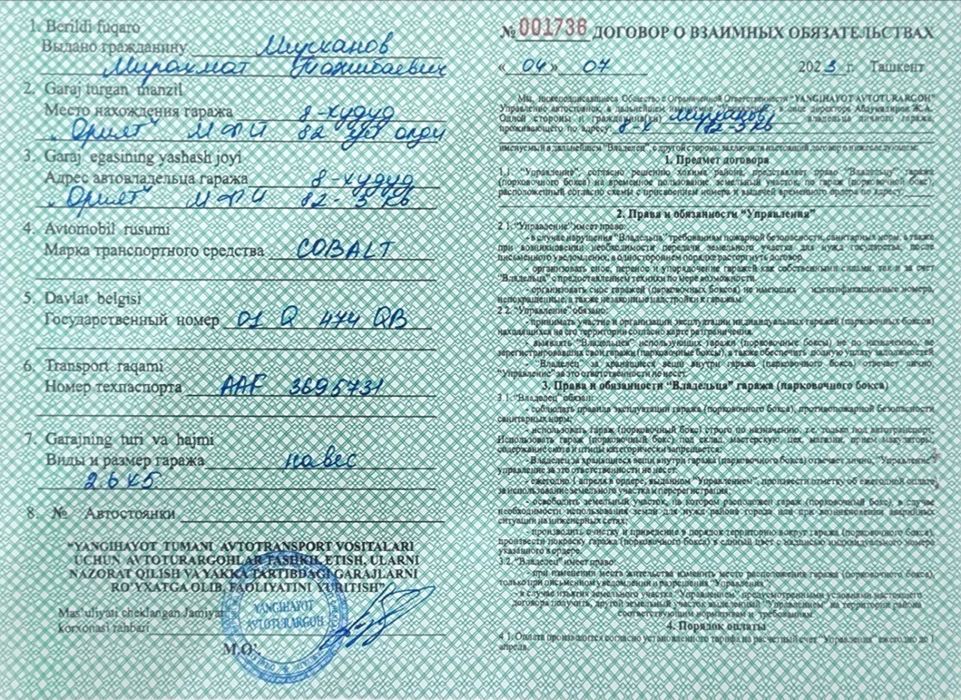 1. Berildi fuqaro
Выдано гражданину Мусканов
Мирахмат Тажибаевич
2. Garaj turgan manzil
Место нахождения гаража 8-худуд
"Орият" МФЙ 82 уй олди
3. Garaj egasining yashash joyi
Адрес автовладельца гаража 8-худуд
"Орият" МФЙ 82-3 кв
4. Avtomobil rusumi
Марка транспортного средства COBALT
5. Davlat belgisi
Государственный номер 01 Q 474 QB
6. Transport raqami
Номер техпаспорта AAF 3695731
7. Garajning turi va hajmi
Виды и размер гаража навес
2.6x5
8. № Автостоянки
"YANGIHAYOT TUMANI AVTOTRANSPORT VOSITALARI
UCHUN AVTOTURARGOHLAR TASHKIL ETISH, ULARNI
NAZORAT QILISH VA YAKKA TARTIBDAGI GARAJLARNI
RO'YXATGA OLIB, FAOLIYATINI YURITISH"
Mas'uliyati cheklangan Jamiyat
korxonasi rahbari
YANGIHAYOT
AVTOTURARGOH
M.O'.
№ 001736 ДОГОВОР О ВЗАИМНЫХ ОБЯЗАТЕЛЬСТВАХ
« 04 » 07 2023 г. Ташкент
Мы, нижеподписавшиеся Общество с Ограниченной Ответственности "YANGIHAYOT AVTOTURARGOH"
Управление автостоянок, в дальнейшем именуемое "Управление", в лице директора Абдувалиев Ж.А.
Одной стороны и гражданин(ка) Мусканов владельца личного гаража,
проживающего по адресу: 8-х 82-3 кв
именуемый в дальнейшем "Владелец", с другой стороны заключили настоящий договор о нижеследующем:
1. Предмет договора
1.1. "Управление", согласно решению хокима района, представляет право "Владельцу" гаража
(парковочного бокса) на временное пользование, земельный участок, по гараж (парковочной бокс),
расположенный согласно схемы с присвоением номера и выдачей временного ордера по адресу:
2. Права и обязанности "Управления"
2.1. "Управление" имеет право:
- в случае нарушения "Владельца" требованиям пожарной безопасности, санитарных норм, а также
при возникновении необходимости передачи земельного участка для нужд государства, после
письменного уведомления, в одностороннем порядке расторгнуть договор.
- организовать снос, перенос и упорядочение гаражей как собственными силами, так и за счет
"Владельца" с предоставлением техники по мере возможности.
- организовать снос гаражей (парковочных боксов) не имеющих идентификационные номера,
непокрашенные, а также незаконные надстройки к гаражам.
2.2. "Управление" обязано:
- принимать участие и организации эксплуатации индивидуальных гаражей (парковочных боксов)
находящихся на его территории согласно карте разграничения.
- выявлять "Владельцев" использующих гаражи (парковочные боксы) не по назначению, не
зарегистрировавших свои гаражи (парковочные боксы), а также обеспечить полную уплату задолженостей.
"Владелец" за хранящиеся вещи внутри гаража (парковочного бокса) отвечает лично,
"Управление" за это ответственности не несет.
3. Права и обязанности "Владельца" гаража (парковочного бокса)
3.1. "Владелец" обязан:
- соблюдать правила эксплуатации гаража (парковочного бокса), противопожарной безопасности
санитарных норм;
- использовать гараж (парковочный бокс) строго по назначению, т.е. только под автотранспорт.
Использовать гараж (парковочный бокс) под склад, мастерскую, цех, магазин, прием макулатуры,
содержание скота и птицы категорически запрещается;
- Владелец за хранящиеся вещи внутри гаража (парковочного бокса) отвечает лично, "Управление"
управление за это ответственности не несет.
- ежегодно 1 апреля в ордере, выданном "Управлением", произвести отметку об ежегодной оплате
за использование земельного участка и перерегистрации;
- освободить земельный участок, на котором расположен гараж (парковочный бокс), в случае
необходимости использования земли для нужд района города или при возникновении аварийных
ситуаций на инженерных сетях;
- производить очистку и приведение в порядок территорию вокруг гаража (парковочного бокса),
произвести покраску гаража (парковочного бокса) в единый цвет с надписью индивидуального номера
указанного в ордере.
3.2. "Владелец" имеет право:
- при изменении места жительства изменить место расположение гаража (парковочного бокса),
только при письменном уведомлении и разрешения "Управления".
- в случае изъятия земельного участка "Управлением" предусмотренными условиями настоящего
договора получить, другой земельный участок выделенный "Управлением" на территории района
соответствующим нормативам и требованиям.
4. Порядок оплаты
4.1. Оплата производится согласно установленного тарифа на расчетный счет "Управления" ежегодно до 1
апреля.